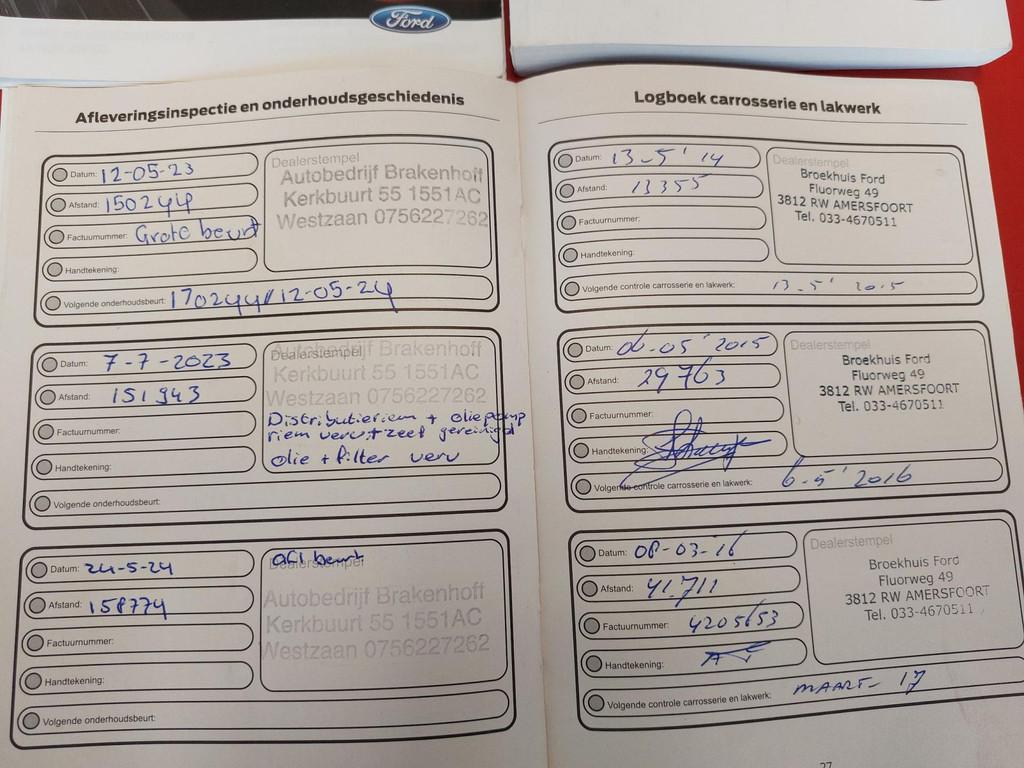 Ford
Afleveringsinspectie en onderhoudsgeschiedenis
Datum: 12-05-23
Afstand: 150244
Factuurnummer: Grote beurt
Handtekening:
Volgende onderhoudsbeurt: 170244 / 12-05-24
Dealerstempel
Autobedrijf Brakenhoff
Kerkbuurt 55 1551AC
Westzaan 0756227262
Datum: 7-7-2023
Afstand: 151943
Factuurnummer:
Handtekening:
Volgende onderhoudsbeurt:
Dealerstempel
Autobedrijf Brakenhoff
Kerkbuurt 55 1551AC
Westzaan 0756227262
Distributieriem + oliepomp
riem verv + zeef gereinigd
olie + filter verv
Datum: 24-5-24
Afstand: 158774
Factuurnummer:
Handtekening:
Volgende onderhoudsbeurt:
beurt
Dealerstempel
Autobedrijf Brakenhoff
Kerkbuurt 55 1551AC
Westzaan 0756227262
Logboek carrosserie en lakwerk
Datum: 13-5'14
Afstand: 13355
Factuurnummer:
Handtekening:
Volgende controle carrosserie en lakwerk: 13-5' 2015
Dealerstempel
Broekhuis Ford
Fluorweg 49
3812 RW AMERSFOORT
Tel. 033-4670511
Datum: 06-05'2015
Afstand: 29763
Factuurnummer:
Handtekening:
Volgende controle carrosserie en lakwerk: 6-5'2016
Dealerstempel
Broekhuis Ford
Fluorweg 49
3812 RW AMERSFOORT
Tel. 033-4670511
Datum: 08-03-16
Afstand: 41.711
Factuurnummer: 4205653
Handtekening:
Volgende controle carrosserie en lakwerk: MAART- 17
Dealerstempel
Broekhuis Ford
Fluorweg 49
3812 RW AMERSFOORT
Tel. 033-4670511
27